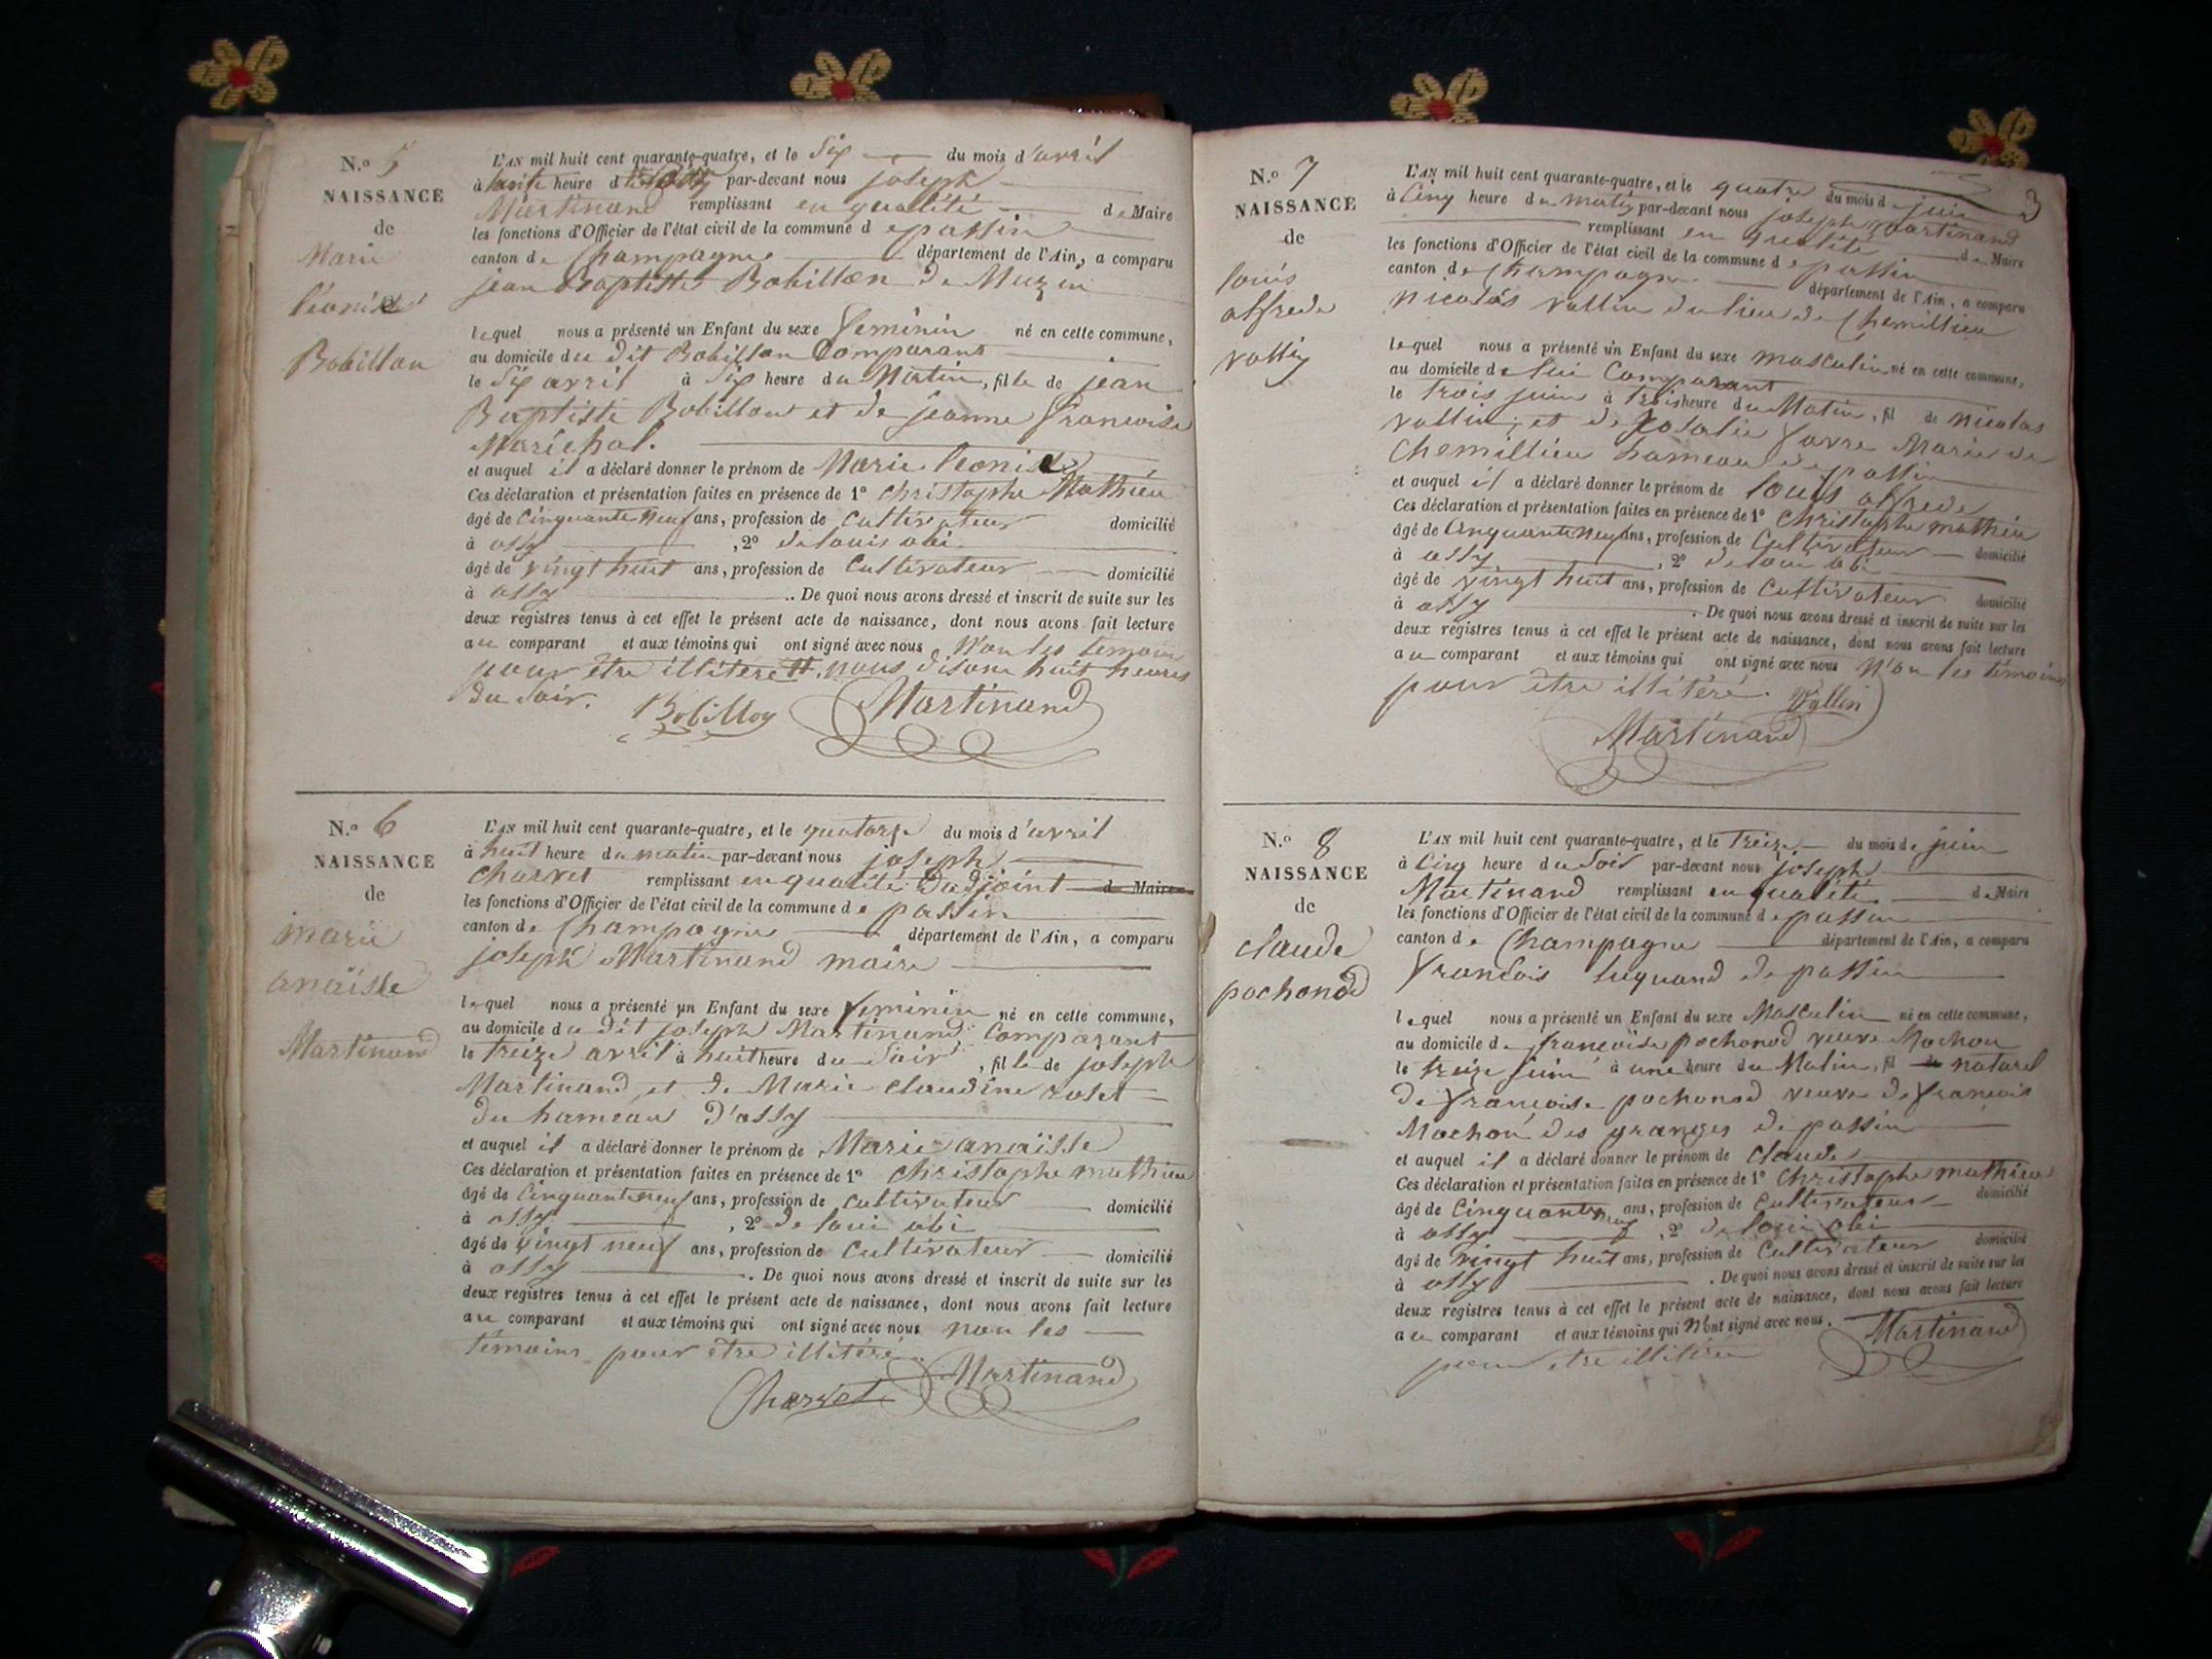 N.o 5
NAISSANCE
de
Marie
léonise
Bobillon
L'AN mil huit cent quarante-quatre, et le Six du mois d'avril
à huit heure d par-devant nous joseph
Martinand remplissant en qualité de Maire
les fonctions d'Officier de l'état civil de la commune de passin
canton de Champagne département de l'Ain, a comparu
jean Baptiste Bobillon de Muzin
lequel nous a présenté un Enfant du sexe feminin né en cette commune,
au domicile du dit Bobillon Comparant
le Six avril à Six heure du Matin, fille de jean
Baptiste Bobillon et de jeanne francoise
Maréchal.
et auquel il a déclaré donner le prénom de Marie leonise
Ces déclaration et présentation faites en présence de 1º Christophe Mathieu
âgé de Cinquante neuf ans, profession de Cultivateur domicilié
à ossy , 2º delouis abi
âgé de vingt huit ans, profession de Cultivateur domicilié
à ossy . De quoi nous avons dressé et inscrit de suite sur les
deux registres tenus à cet effet le présent acte de naissance, dont nous avons fait lecture
au comparant et aux témoins qui ont signé avec nous Non les temoin
pour être illiteré. nous disons huit heures
du Soir. Bobillon Martinand
N.o 6
NAISSANCE
de
marie
anaïsse
Martinand
L'AN mil huit cent quarante-quatre, et le quatorze du mois d'avril
à huit heure du matin par-devant nous joseph
Charvet remplissant en qualité Dadjoint de Maire
les fonctions d'Officier de l'état civil de la commune de passin
canton de Champagne département de l'Ain, a comparu
joseph Martinand maire
lequel nous a présenté un Enfant du sexe feminin né en cette commune,
au domicile du dit joseph Martinand Comparant
le treize avril à huit heure du Soir, fille de joseph
Martinand, et de Marie claudine rolet
du hameau d'ossy
et auquel il a déclaré donner le prénom de Marie anaïsse
Ces déclaration et présentation faites en présence de 1º Christophe mathieu
âgé de Cinquante neuf ans, profession de Cultivateur domicilié
à ossy , 2º de loui abi
âgé de vingt neuf ans, profession de Cultivateur domicilié
à ossy . De quoi nous avons dressé et inscrit de suite sur les
deux registres tenus à cet effet le présent acte de naissance, dont nous avons fait lecture
au comparant et aux témoins qui ont signé avec nous non les
témoins pour être illitéré
Charvet Martinand
3
N.o 7
NAISSANCE
de
louis
alfrede
vallin
L'AN mil huit cent quarante-quatre, et le quatre du mois de juin
à Cinq heure du matin par-devant nous joseph Martinand
remplissant en qualité de Maire
les fonctions d'Officier de l'état civil de la commune de passin
canton de Champagne département de l'Ain, a comparu
nicolas vallin du lieu de Chemillieu
lequel nous a présenté un Enfant du sexe masculin né en cette commune,
au domicile de lui Comparant
le trois juin à trois heure du Matin, fil de nicolas
vallin, et de Rosalie favre Marié de
Chemillieu hameau de passin
et auquel il a déclaré donner le prénom de louis alfrede
Ces déclaration et présentation faites en présence de 1º Christophe mathieu
âgé de Cinquante neuf ans, profession de Cultivateur domicilié
à ossy , 2º de loui abi
âgé de vingt huit ans, profession de Cultivateur domicilié
à ossy . De quoi nous avons dressé et inscrit de suite sur les
deux registres tenus à cet effet le présent acte de naissance, dont nous avons fait lecture
au comparant et aux témoins qui ont signé avec nous N'on les témoins
pour être illitéré. Vallin
Martinand
N.o 8
NAISSANCE
de
claude
pochonod
L'AN mil huit cent quarante-quatre, et le treize du mois de juin
à Cinq heure du Soir par-devant nous joseph
Martinand remplissant en qualité de Maire
les fonctions d'Officier de l'état civil de la commune de passin
canton de Champagne département de l'Ain, a comparu
francois luquand de passin
lequel nous a présenté un Enfant du sexe Masculin né en cette commune,
au domicile de françoise pochonod veuve Mochon
le treize juin à une heure du Matin, fil de naturel
de françoise pochonod veuve de francois
Mochon des granges de passin
et auquel il a déclaré donner le prénom de Claude
Ces déclaration et présentation faites en présence de 1º Christophe mathieu
âgé de Cinquante neuf ans, profession de Cultivateur domicilié
à ossy , 2º de loui abi
âgé de vingt huit ans, profession de Cultivateur domicilié
à ossy . De quoi nous avons dressé et inscrit de suite sur les
deux registres tenus à cet effet le présent acte de naissance, dont nous avons fait lecture
au comparant et aux témoins qui N'ont signé avec nous. Martinand
pour etre illitéré